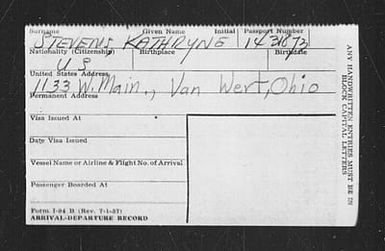 Surname Given Name Initial Passport Number
STEVENS KATHRYNE 1431873
Nationality (Citizenship) Birthplace Birthdate
U S
United States Address
1133 W. Main., Van Wert, Ohio
Permanent Address
Visa Issued At
Date Visa Issued
Vessel Name or Airline & Flight No. of Arrival
Passenger Boarded At
Form I-94 B (Rev. 7-1-57)
ARRIVAL-DEPARTURE RECORD
ANY HANDWRITTEN ENTRIES MUST BE IN
BLOCK CAPITAL LETTERS